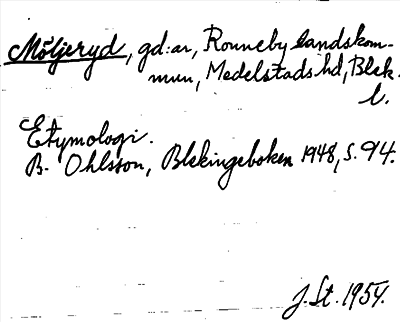 Möljeryd, gd:ar, Ronneby landskom-
mun, Medelstads hd, Blek.
l.
Etymologi.
B. Ohlsson, Blekingeboken 1948, s. 94.
J. St. 1954.